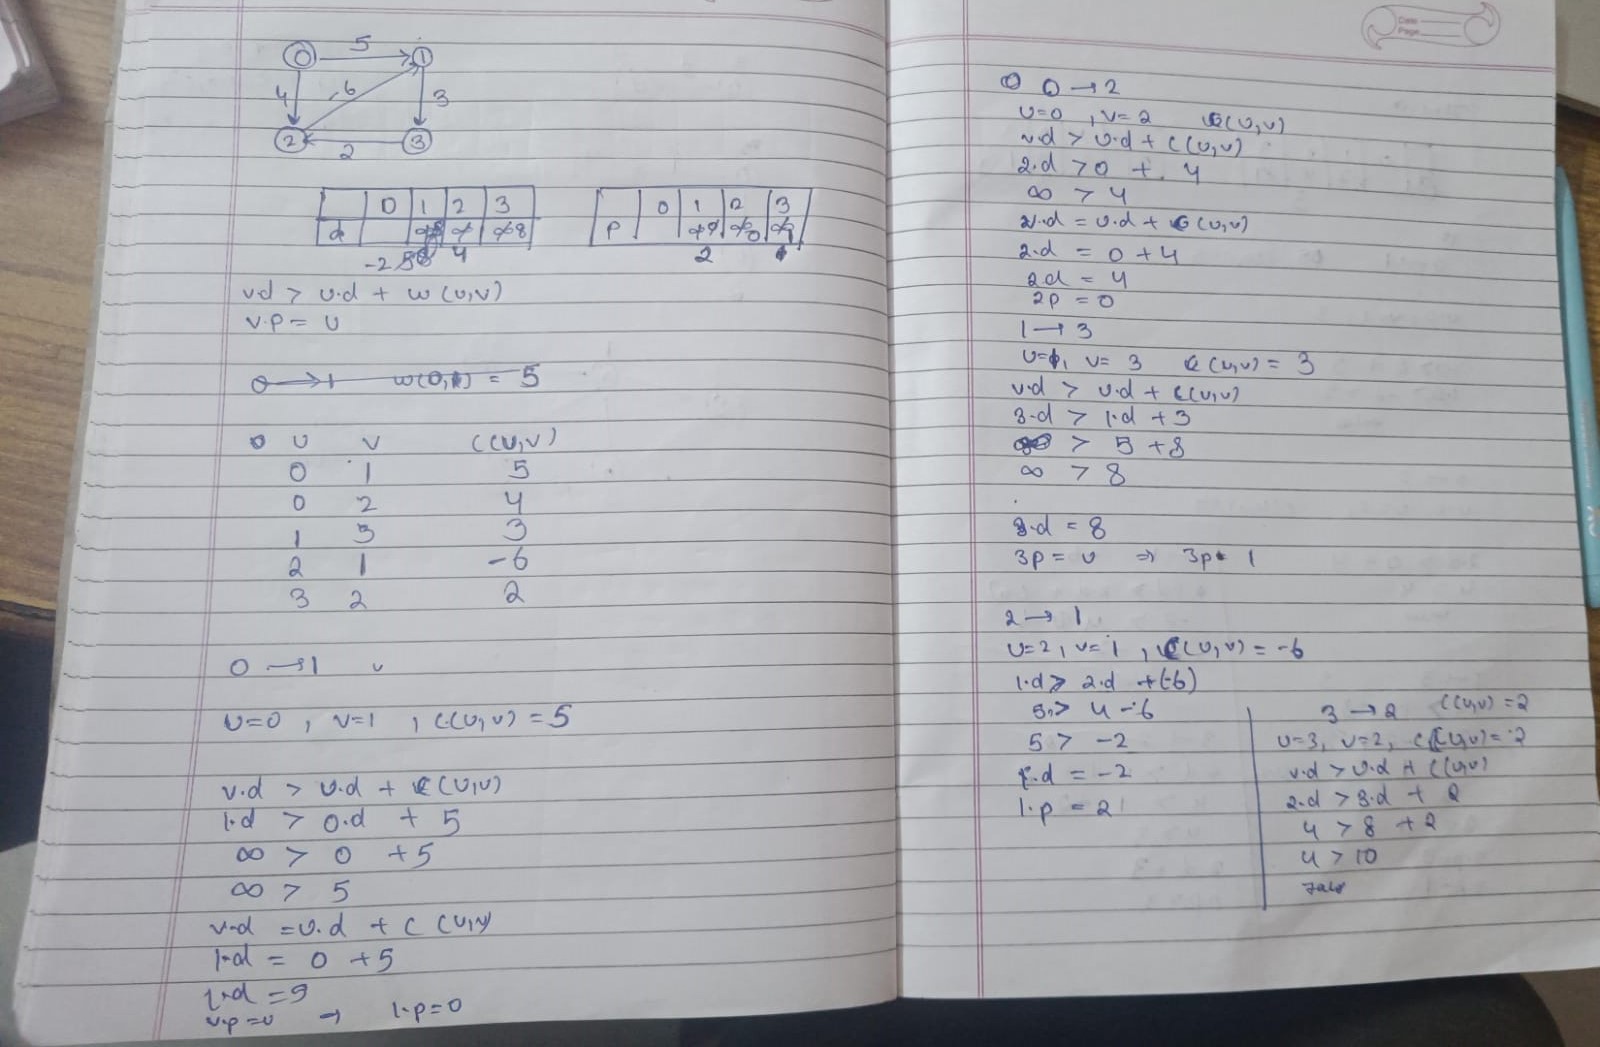 0 5 1
4 -6 3
2 2 3
0 1 2 3
d ∞ ∞ ∞ 8
-2 5 8 4
0 1 2 3
P ∞ 0 ∞ 0 ∞ 1
2
v.d > u.d + w(u,v)
v.p = u
0 → 1 w(0,1) = 5
u v C(u,v)
0 1 5
0 2 4
1 3 3
2 1 -6
3 2 2
0 → 1 v
u=0, v=1, C(u,v) = 5
v.d > u.d + C(u,v)
1.d > 0.d + 5
∞ > 0 + 5
∞ > 5
v.d = u.d + C(u,v)
1.d = 0 + 5
1.d = 5
v.p = u → 1.p = 0
Date
Page
0 → 2
u=0, v=2 C(u,v)
v.d > u.d + C(u,v)
2.d > 0 + 4
∞ > 4
2.d = u.d + C(u,v)
2.d = 0 + 4
2d = 4
2p = 0
1 → 3
u=1, v= 3 C(u,v) = 3
v.d > u.d + C(u,v)
3.d > 1.d + 3
> 5 + 8
∞ > 8
3.d = 8
3p = u ⇒ 3p 1
2 → 1
u=2, v=1, C(u,v) = -6
1.d > 2.d + (-6)
5 > 4 - 6
5 > -2
1.d = -2
1.p = 2
3 → 2 C(u,v) = 2
u=3, v=2, C(u,v) = 2
v.d > u.d + C(u,v)
2.d > 3.d + 2
4 > 8 + 2
4 > 10
false